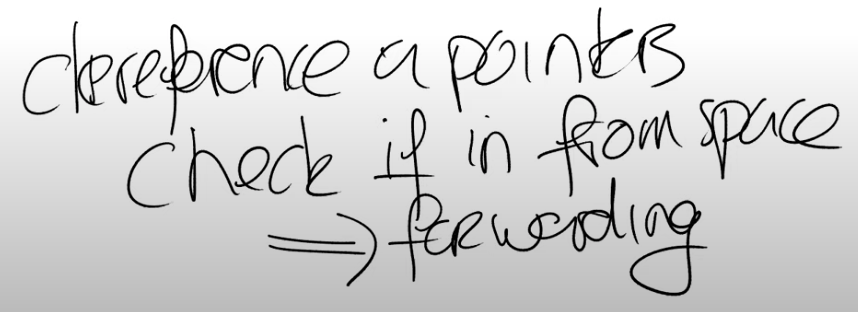 dereference a pointers
check if in from space
⟹ forwarding